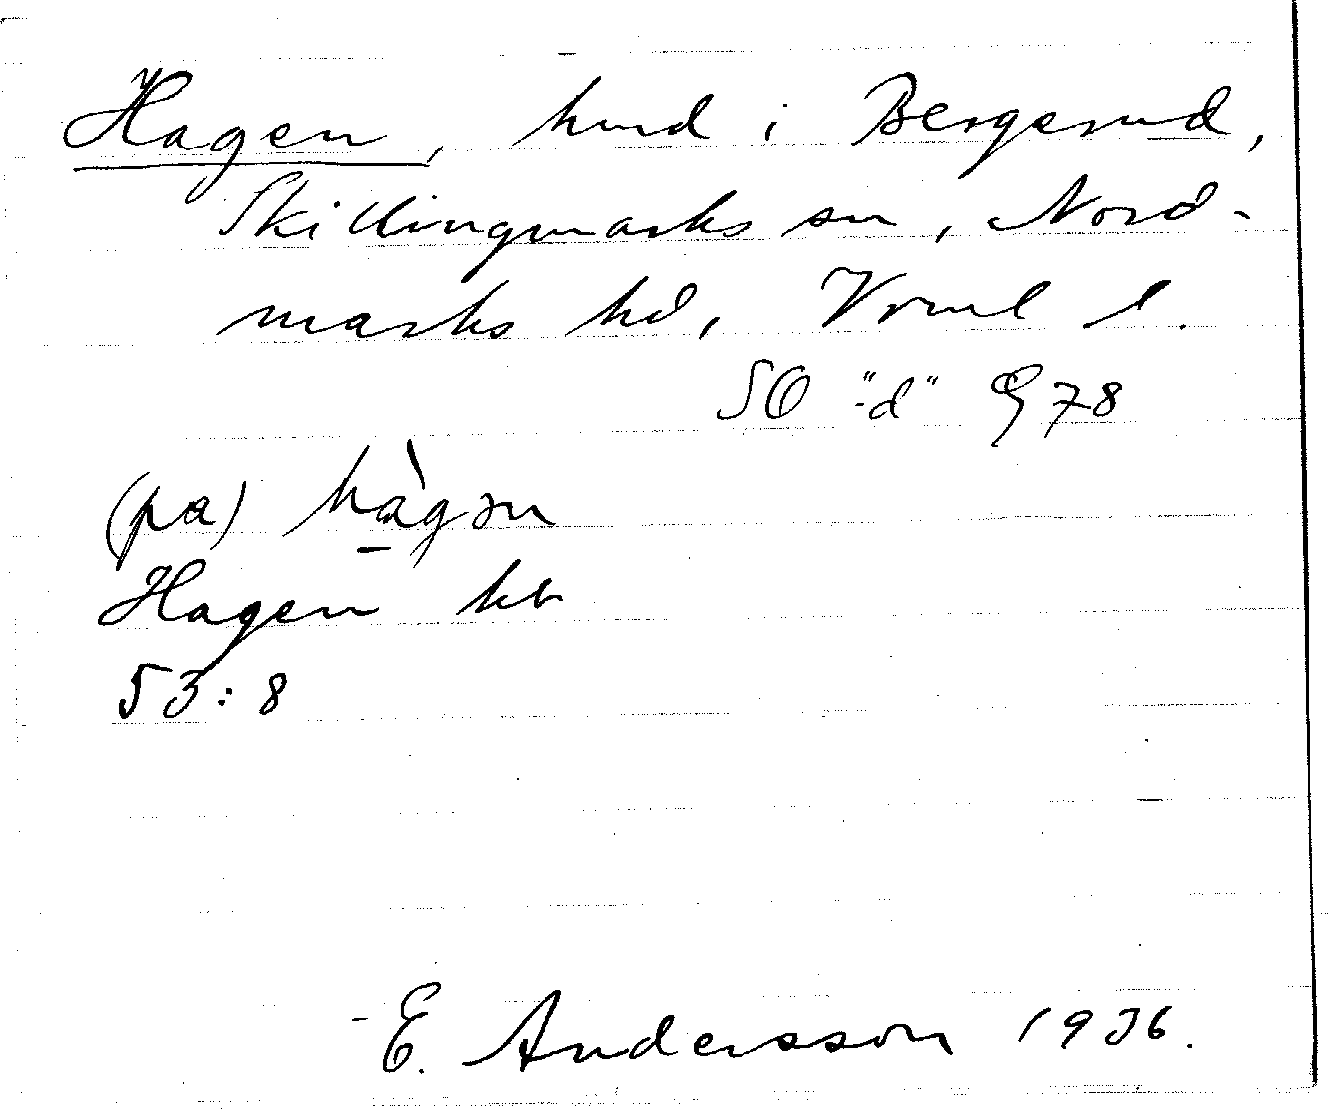 Hagen, hmd i Bergerud,
Skillingmarks sn, Nord-
marks hd, Vrml l.
SO "d" G 78
(pa) hàgən
Hagen kb
53:8
E. Andersson 1936.